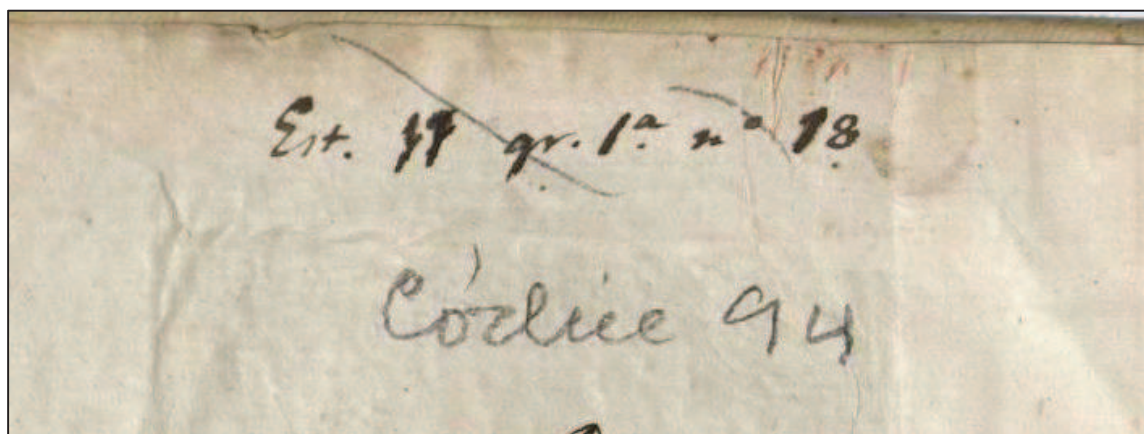 Est. 11 gr. 1.ª nº 18
Códice 94